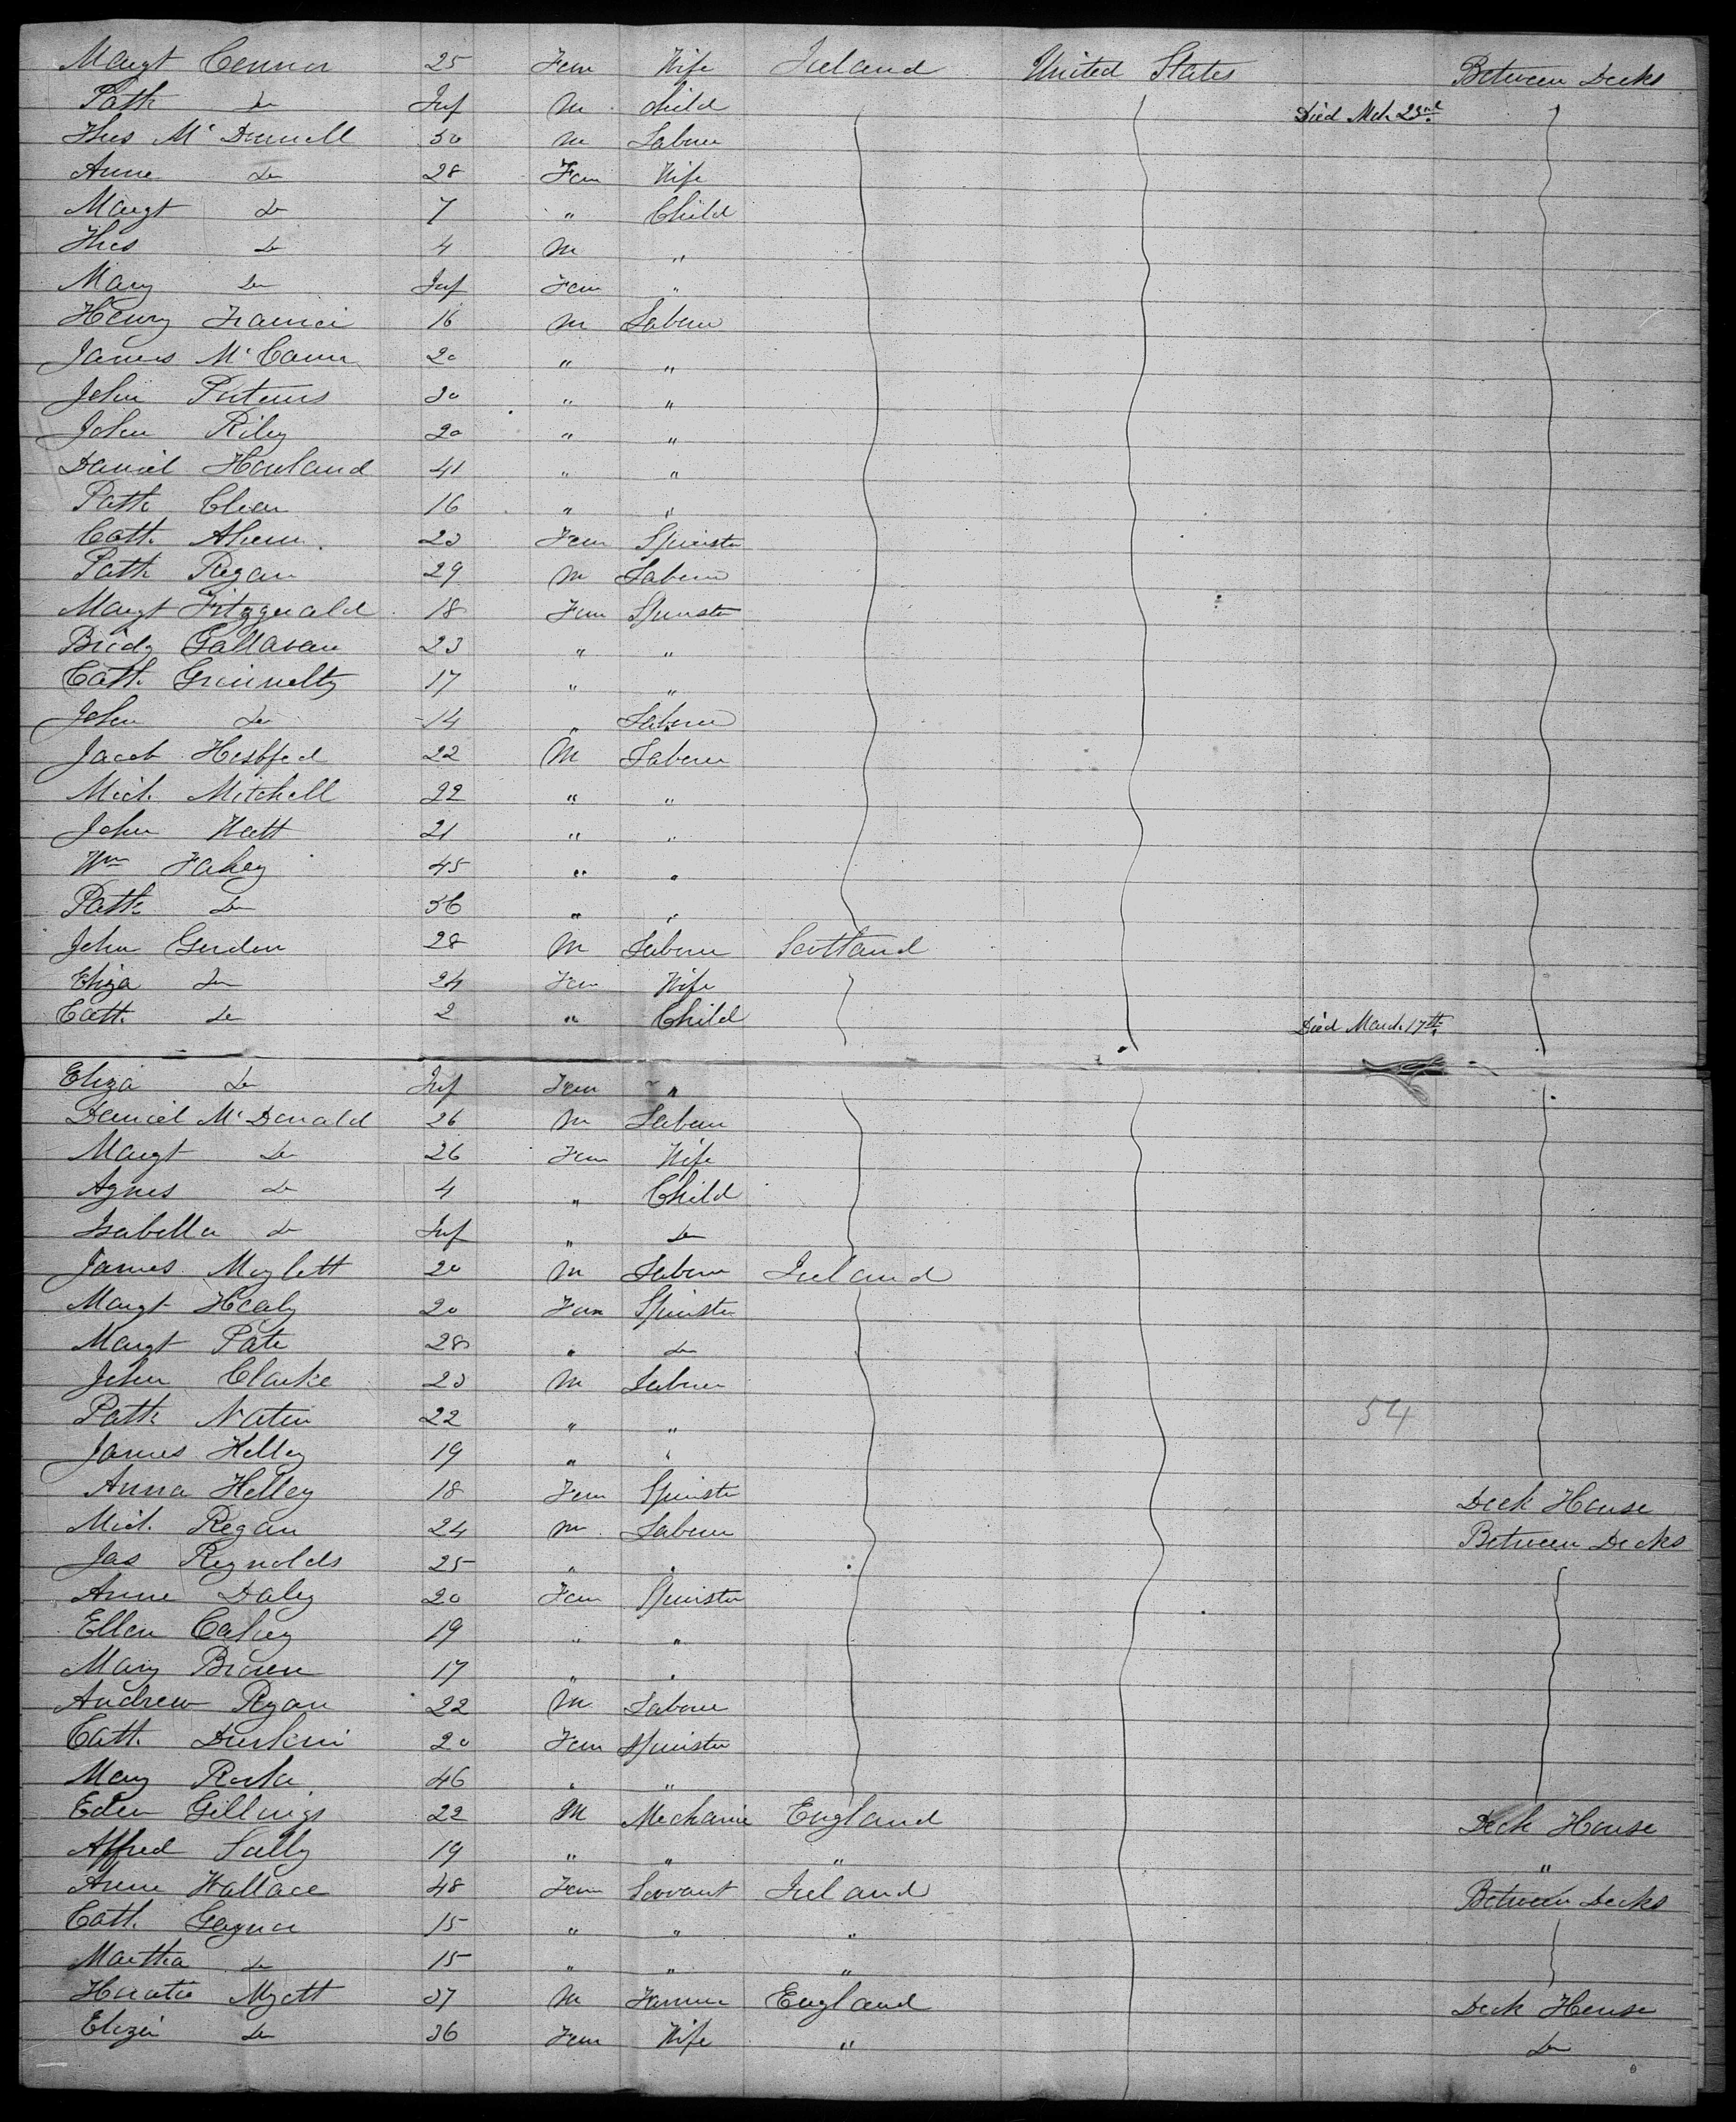 Margt Connor 25 Fem Wife Ireland United States Between Decks
Patk Do Inf M Child Died Mch 23rd
Thos McDonnell 30 M Laborer
Anne Do 28 Fem Wife
Margt Do 7 " Child
Thos Do 4 M "
Mary Do Inf Fem "
Henry 16 M Laborer
James McCann 20 " "
John 30 " "
John Riley 20 " "
Daniel Howland 41 " "
Patk 16 " "
Cath. Ahern 23 Fem Spinster
Patk Regan 29 M Laborer
Margt Fitzgerald 18 Fem Spinster
Bridg Gallavan 23 " "
Cath. 17 " "
John Do 14 " Laborer
Jacob 22 M Laborer
Mich. Mitchell 22 " "
John Watt 21 " "
Wm Fahey 45 " "
Patk Do 36 " "
John Gordon 28 M Laborer Scotland
Eliza Do 24 Fem Wife
Cath. Do 2 " Child Died March 17th
Eliza Do Inf Fem "
Daniel McDonald 26 M Laborer
Margt Do 26 Fem Wife
Agnes Do 4 " Child
Isabella Do Inf " Do
James Moylett 20 M Laborer Ireland
Margt Healy 20 Fem Spinster
Margt Pate 28 " Do
John Clarke 23 M Laborer
Patk 22 " " 54
James Kelley 19 " "
Anna Kelley 18 Fem Spinster Deck House
Mich. Regan 24 M Laborer Between Decks
Jas Reynolds 25 " "
Anne Daley 20 Fem Spinster
Ellen Cahey 19 " "
Mary Brown 17 " "
Andrew Ryan 22 M Laborer
Cath. Durkin 20 Fem Spinster
Mary 46 " "
Eden Gillings 22 M Mechanic England Deck House
Alfred Sally 19 " " " "
Anne Wallace 48 Fem Servant Ireland Between Decks
Cath. Gaynor 15 " " "
Martha Do 15 " " "
Horatio Myatt 37 M Farmer England Deck House
Eliza Do 36 Fem Wife " Do